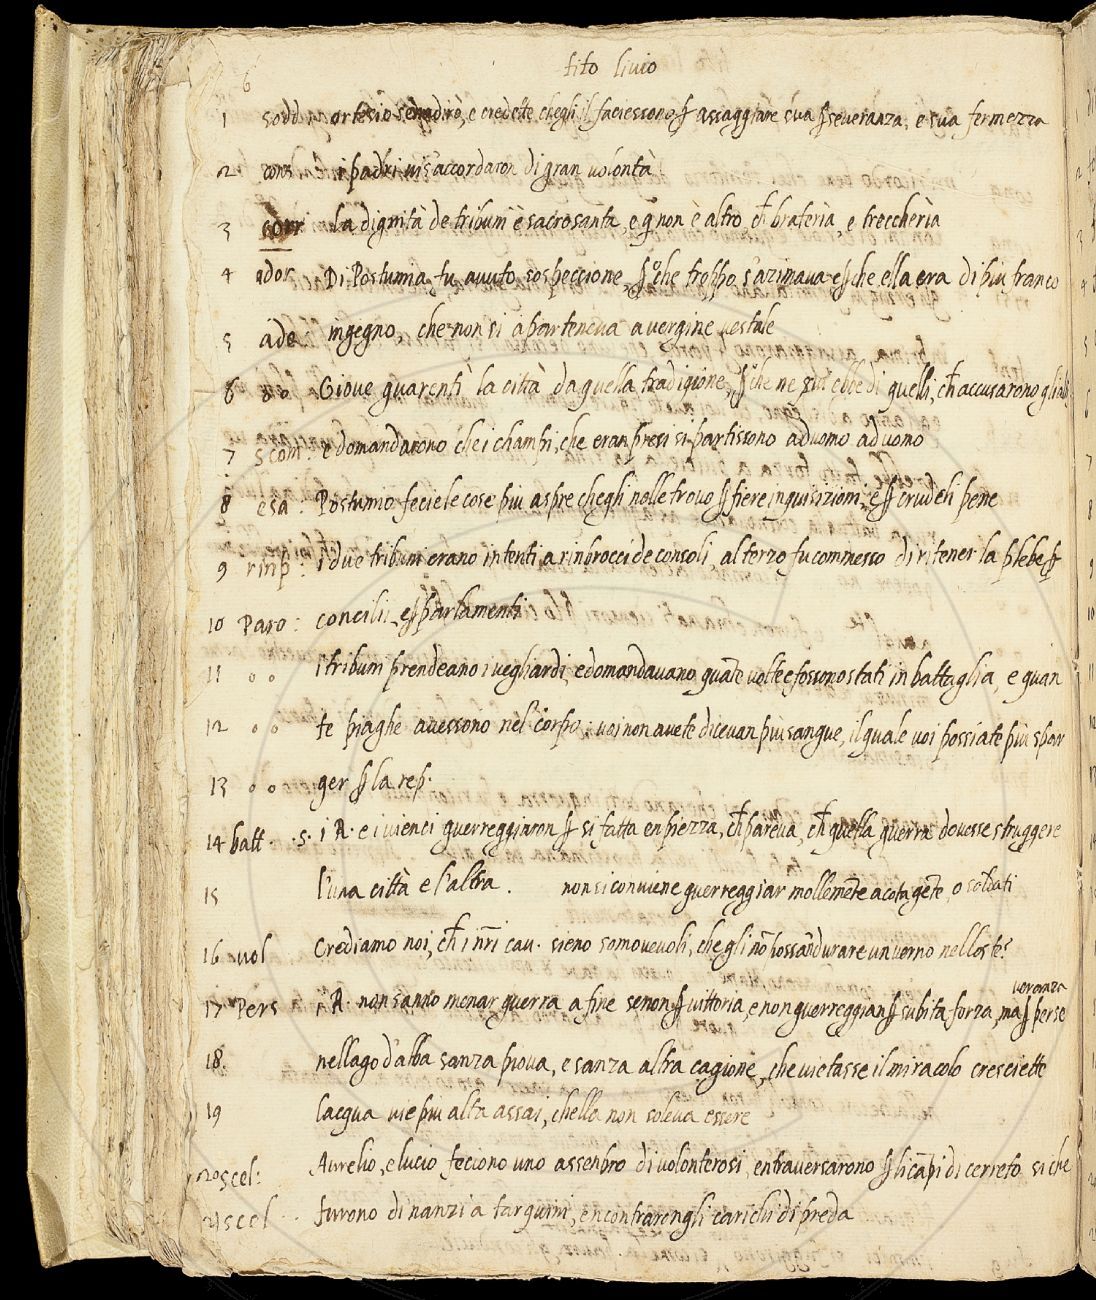 6
tito livio
1 sodd ortesio sen adirò, e credette chegli il faciessono ꝑ assaggiare sua ꝑseveranza, e sua fermezza
2 cons i padri vis'accordaron di gran volontà
3 corr la dignità de tribuni è sacrosanta, e q̄ non è altro ch̄ brateria, e treccheria
4 odor Di Postumia fu avuto sospeccione, ꝑo che troppo s'azimava e ꝑche ella era di più franco
5 ado ingegno, che non si apartenena a vergine vestale
6 8 o Giove guarentì la città da quella tradigione, ꝑche ne più ebbe di quelli, ch̄ accusarono gli
7 scom: e domandarono che i champi, che eran presi si partissono aduomo aduono
8 esa: Postumio feciele cose più aspre chegli nolle trovo ꝑ fiere inquisizioni, e ꝑ crudeli pene
9 rinp: i due tribuni erano intenti a rinprocci de consoli, al terzo fu commesso di ritener la plebe ꝑ
10 Paro: concilii, e ꝑ parlamenti
11 o o i tribuni prendeano i vegliardi, e domandavano quāte volte e fossono stati in battaglia, e quan
12 o o te piaghe avessono nel corpo: voi non avete dicevan più sangue, il quale voi possiate più spar
13 o o ger ꝑ la rep.
14 batt .s. i R. e i vienci guerreggiaron ꝑ si fatta enpiezza, ch̄ pareva, ch̄ quella guerra dovesse struggere
15 l'una città e l'altra. non si conviene guerreggiar mollemēte a cota gēte, o soldati
16 vol Crediamo noi, ch̄ i nr̄i cau. sieno somovevoli, che gli nō possan durare un verno nelloste?
17 Pers i R. non sanno menar guerra a fine senon ꝑ vittoria, e non guerreggian ꝑ subita forza, ma ꝑ perse
veranza
18. nellago d'alba sanza piova, e sanza altra cagione, che vietasse il miracolo cresciette
19 lacqua vie più alta assai, chella non soleva essere
20 scel: Aurelio, e lucio feciono uno assenbro di volonterosi, entraversarono ꝑ li cāpi di cerreto si che
21 scel furono dinanzi a tarquini, encontrarongli carichi di preda